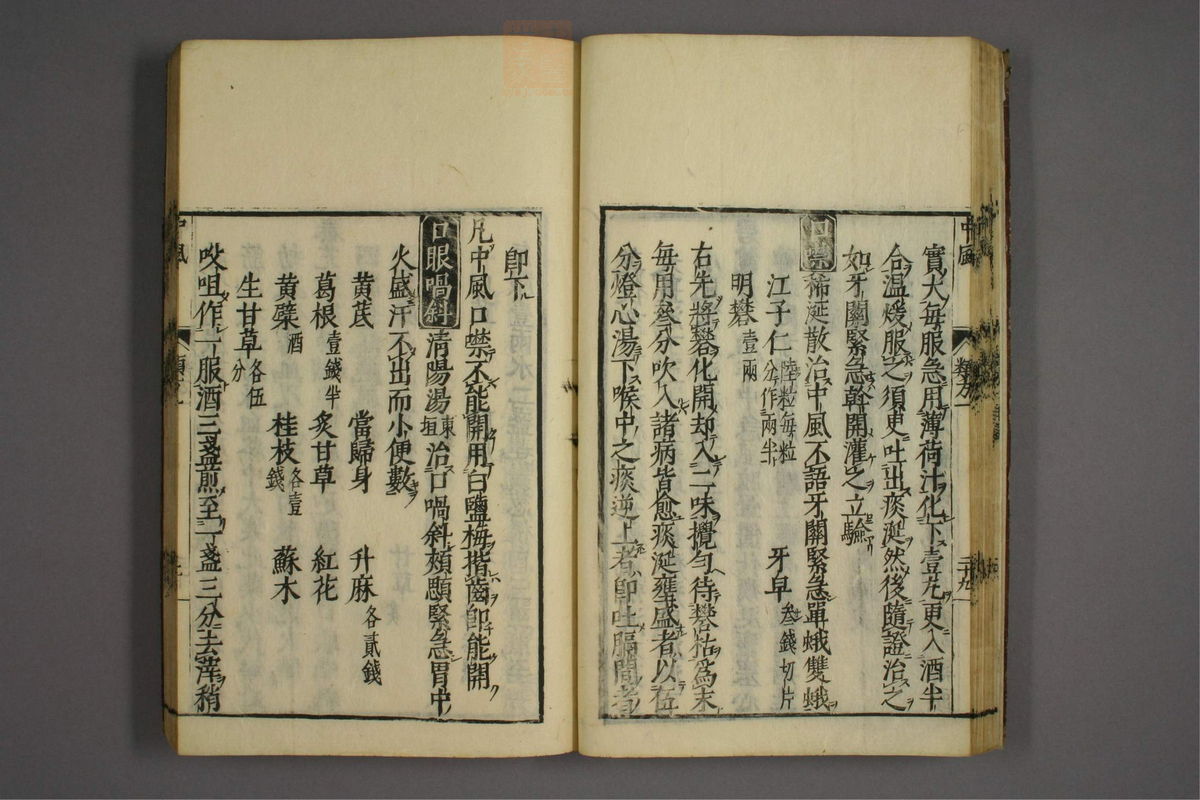 實大每服急用薄荷汁化下壹丸更入酒半
合温煖服之須更吐出痰涎然後隨證治之
如牙關緊急斡開灌之立驗
口噤 稀涎散治中風不語牙關緊急單蛾雙蛾
江子仁 陸粒每粒分作兩半 牙皂 叁錢切片
明礬 壹兩
右先將礬化開却入二味攪勻待礬枯爲末
每用叁分吹入諸病皆愈痰涎壅盛者以伍
分燈心湯下喉中之痰逆上者卽吐膈間者
卽下
凡中風口噤不能開用白鹽梅揩齒卽能開
口眼喎斜 清陽湯 東垣 治口喎斜頰顋緊急胃中
火盛汗不出而小便數
黃芪 當歸身 升麻 各貳錢
葛根 壹錢半 炙甘草 紅花
黃蘗 酒 桂枝 各壹錢 蘇木
生甘草 各伍分
㕮咀作一服酒三盞煎至一盞三分去滓稍
中風
中風